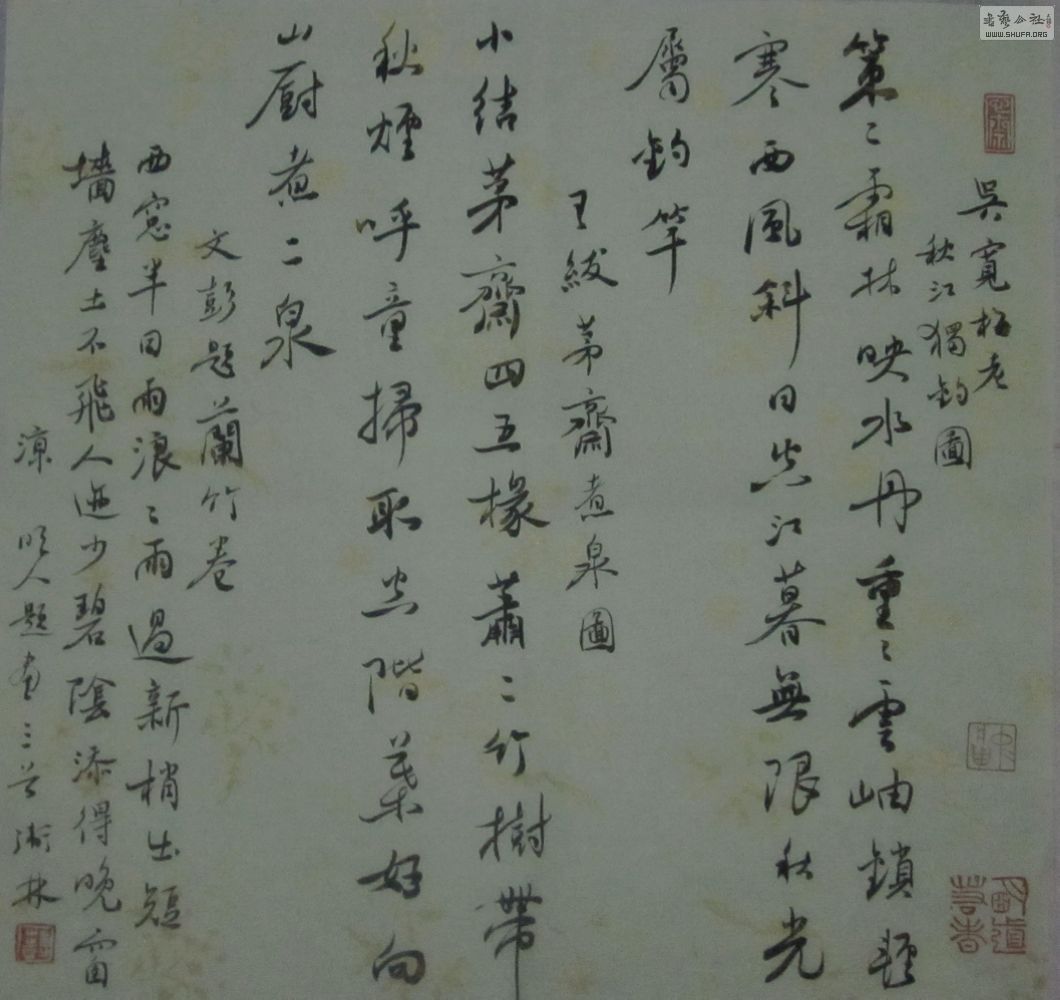 吳寬 梅老
秋江獨釣圖
策〻霜林映水丹重〻雲岫鎖輕
寒西風斜日空江暮無限秋光
屬釣竿
王紱茅齋煮泉圖
小結茅齋四五椽蕭〻竹樹帶
秋煙呼童掃取空階葉好向
山厨煮二泉
文彭題蘭竹卷
西窓半日雨浪〻雨過新梢出短
墻塵土不飛人迹少碧陰添得晚窗
涼 明人題畫三首 衛林
書藝公社
WWW.SHUFA.ORG